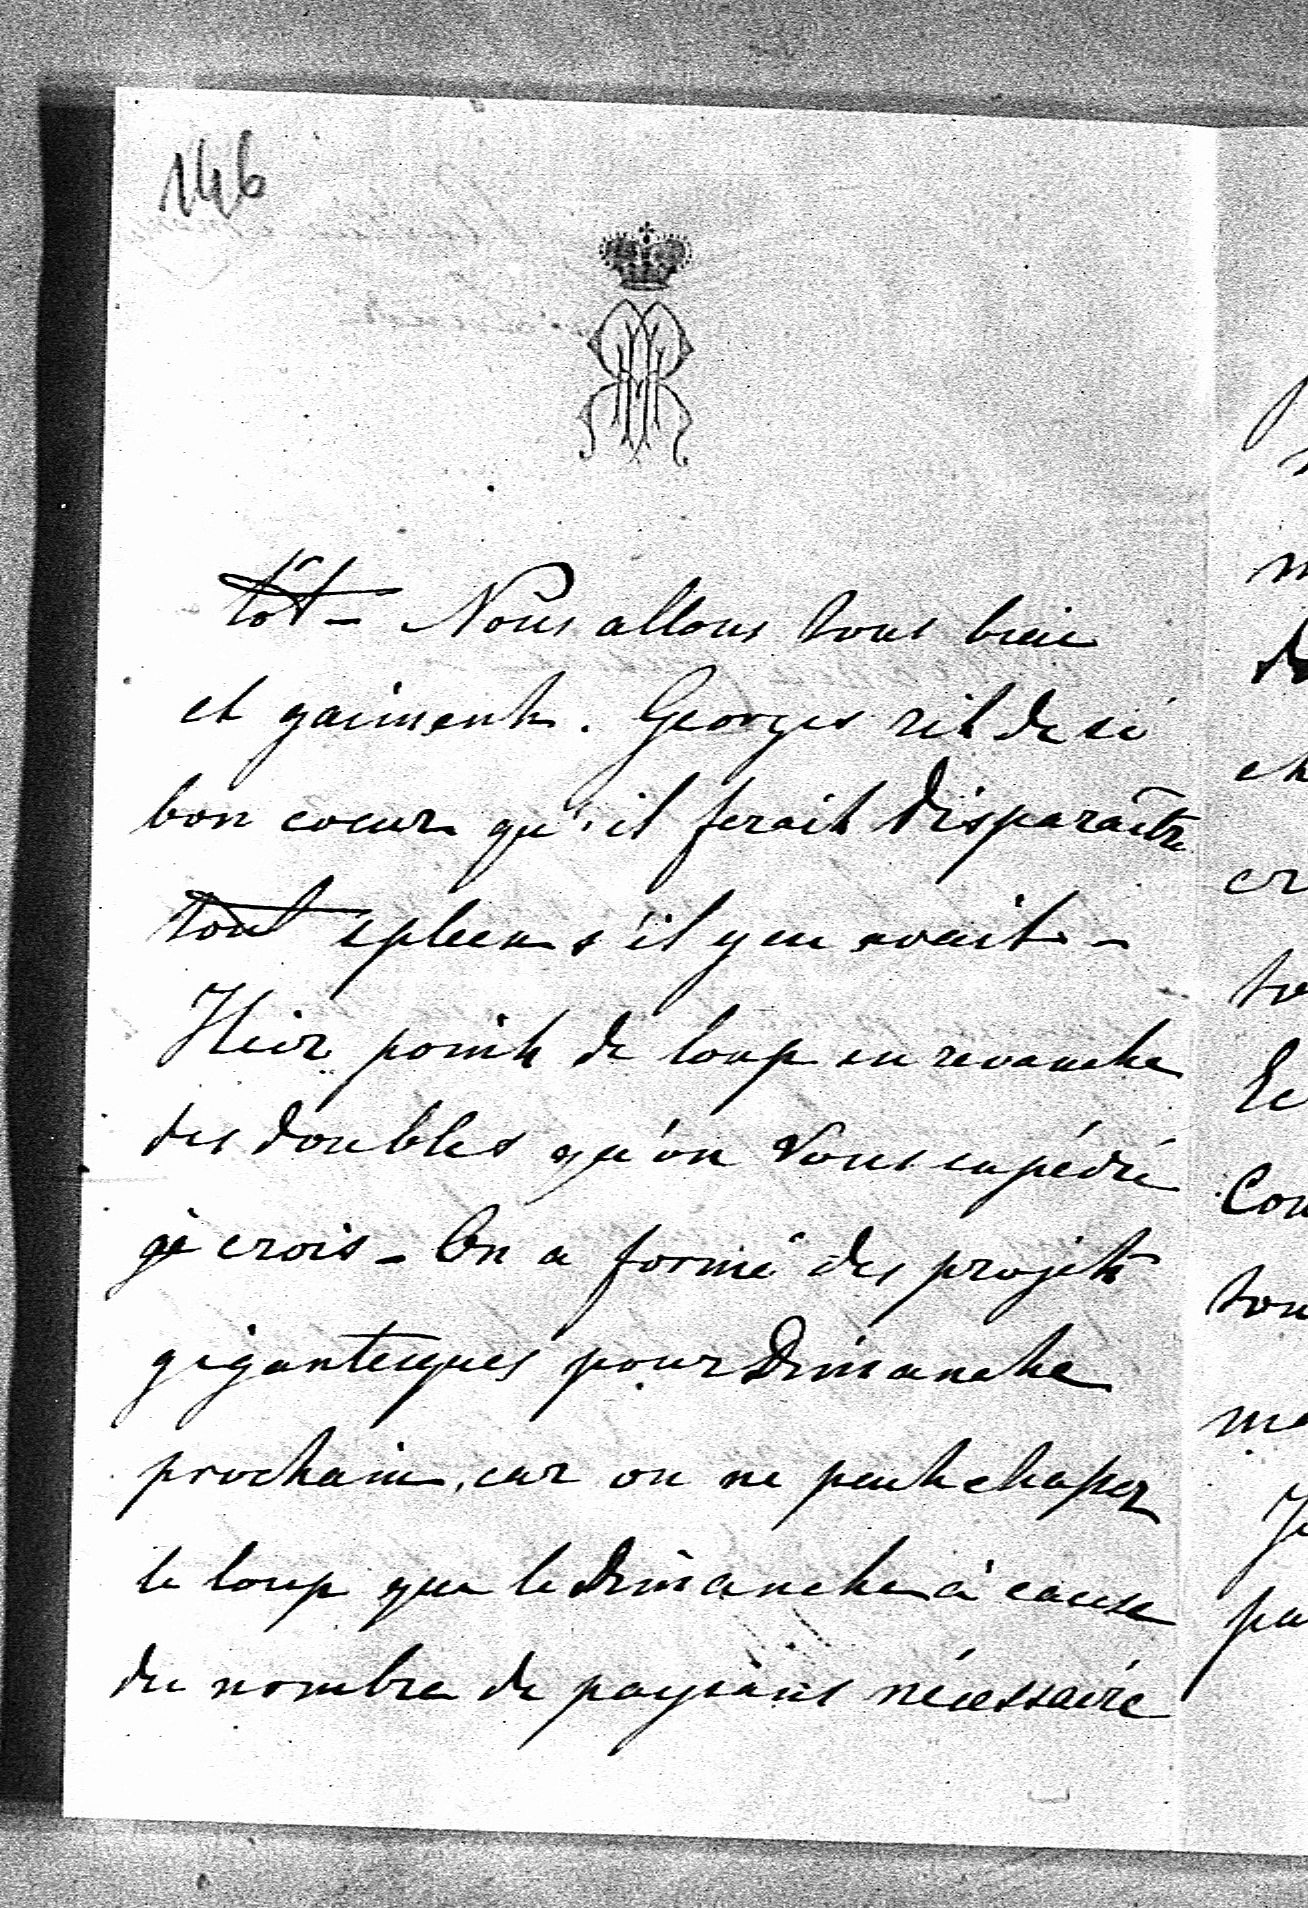 146
tôt – Nous allons tous bien
et gaiment. Georges rit de si
bon coeur qu'il ferait disparaître
tout spleen s'il y en avait –
Hier point de loup en revanche
des doubles qu'on vous expédie
je crois – On a formé des projets
gigantesques pour Dimanche
prochain, car on ne peut chasser
le loup que le Dimanche à cause
du nombre de paysans nécessaire